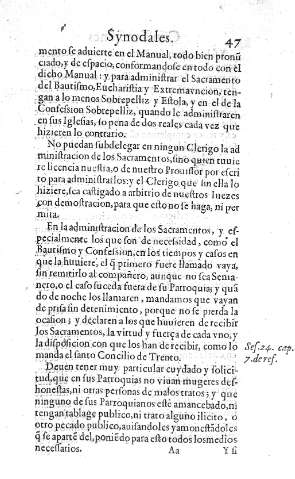 Synodales. 47
mento se advierte en el Manual, todo bien pronũ
ciado, y de espacio, conformandose en todo con el
dicho Manual: y para administrar el Sacramento
del Bautismo, Eucharistia y Extremavncion, ten-
gan a lo menos Sobrepelliz y Estola, y en el de la
Confession Sobrepelliz, quando le administraren
en sus Iglesias, so pena de dos reales cada vez que
hizieren lo contrario.
No puedan subdelegar en ningun Clerigo la ad
ministracion de los Sacramentos, sino quien tuuie
re licencia nuestra, o de nuestro Prouissor por escri
to para administrarlos: y el Clerigo que sin ella lo
hiziere, sea castigado a arbitrio de nuestros Iuezes
con demostracion, para que esto no se haga, ni per
mita.
En la administracion de los Sacramentos, y es-
pecialmente los que son de necessidad, como el
Bautismo y Confession, en los tiempos y casos en
que la huuiere, el q̃ primero fuere llamado vaya,
sin remitirlo al compañero, aunque no sea Sema-
nero, o el caso suceda fuera de su Parroquia; y quã
do de noche los llamaren, mandamos que vayan
de prisa sin detenimiento, porque no se pierda la
ocasion; y declaren a los que huuieren de recibir
los Sacramentos, la virtud y fuerça de cada vno, y
la disposicion con que los han de recibir, como lo
manda el santo Concilio de Trento.
Ses. 24. cap.
7. de ref.
Deuen tener muy particular cuydado y solici-
tud, que en sus Parroquias no viuan mugeres des-
honestas, ni otras personas de malos tratos; y que
ninguno de sus Parroquianos estè amancebado, ni
tengan tablage publico, ni trato alguno ilicito, o
otro pecado publico, auisandoles y amonestãdoles
q̃ se apartẽ del, poniẽdo para esto todos los medios
necessarios. Aa Y si